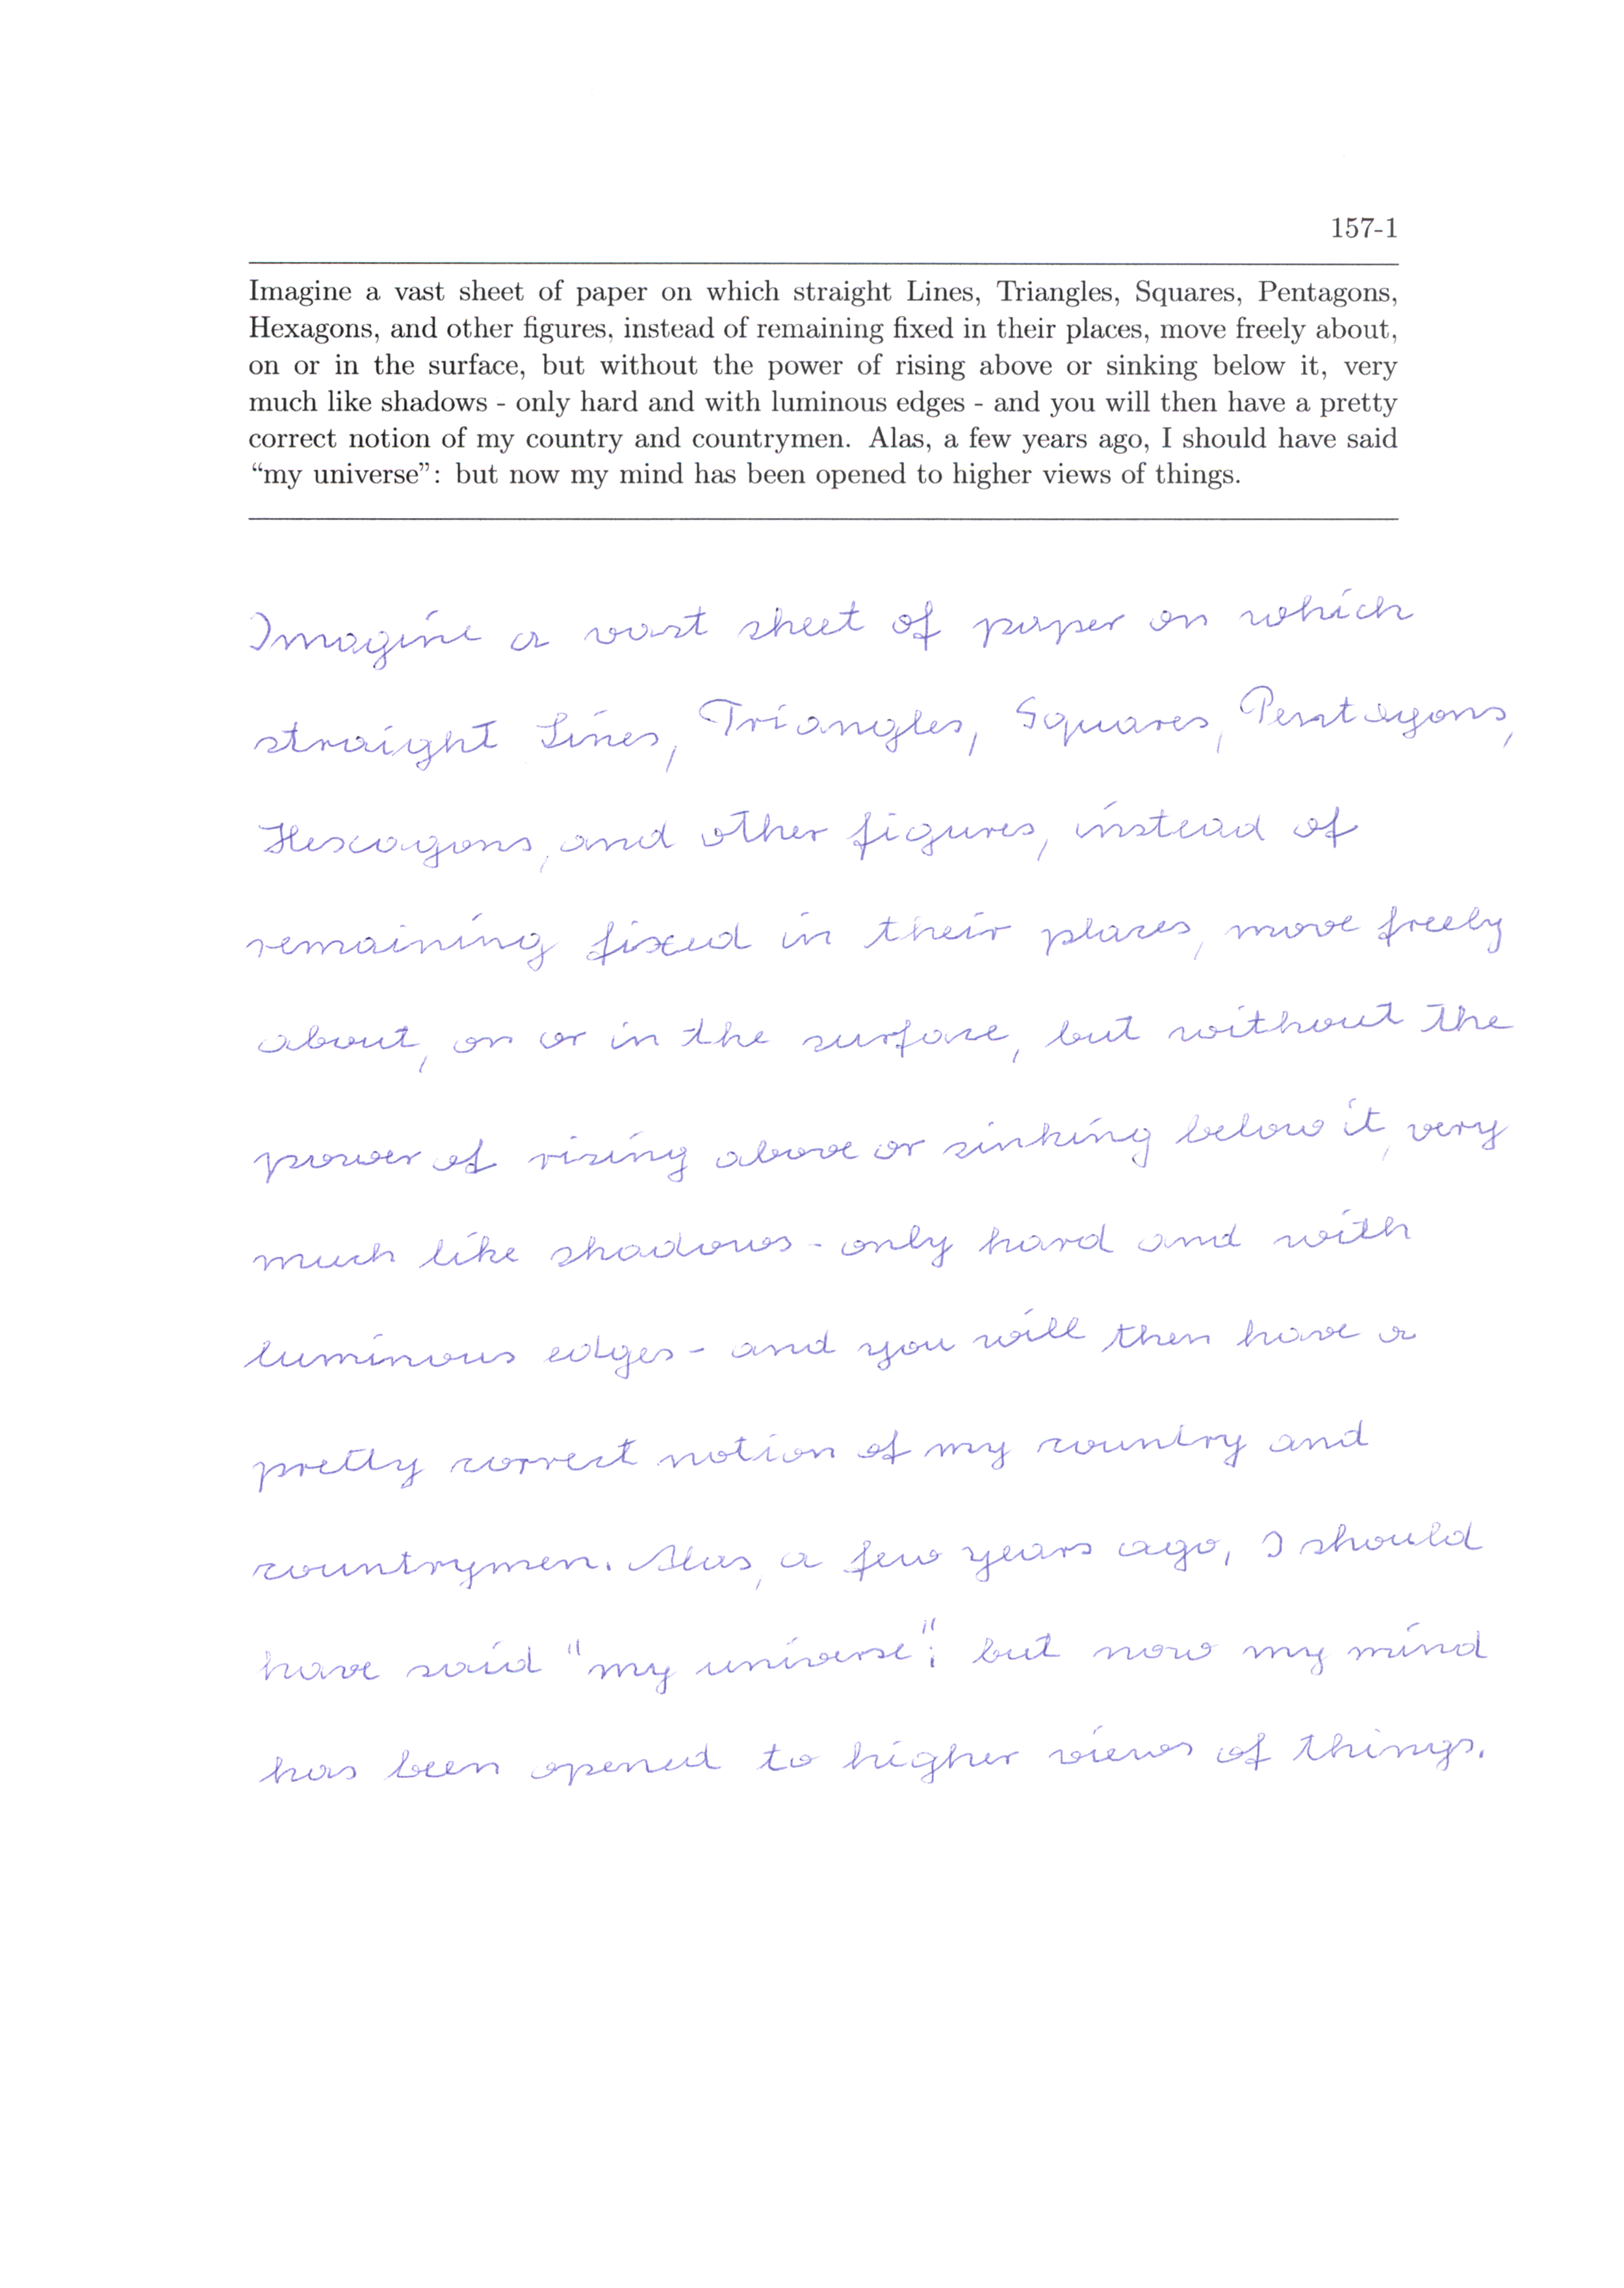 157-1
Imagine a vast sheet of paper on which straight Lines, Triangles, Squares, Pentagons,
Hexagons, and other figures, instead of remaining fixed in their places, move freely about,
on or in the surface, but without the power of rising above or sinking below it, very
much like shadows - only hard and with luminous edges - and you will then have a pretty
correct notion of my country and countrymen. Alas, a few years ago, I should have said
“my universe”: but now my mind has been opened to higher views of things.
Imagine a vast sheet of paper on which
straight Lines, Triangles, Squares, Pentagons,
Hexagons, and other figures, instead of
remaining fixed in their places, move freely
about, on or in the surface, but without the
power of rising above or sinking below it, very
much like shadows - only hard and with
luminous edges - and you will then have a
pretty correct notion of my country and
countrymen. Alas, a few years ago, I should
have said "my universe": but now my mind
has been opened to higher views of things.